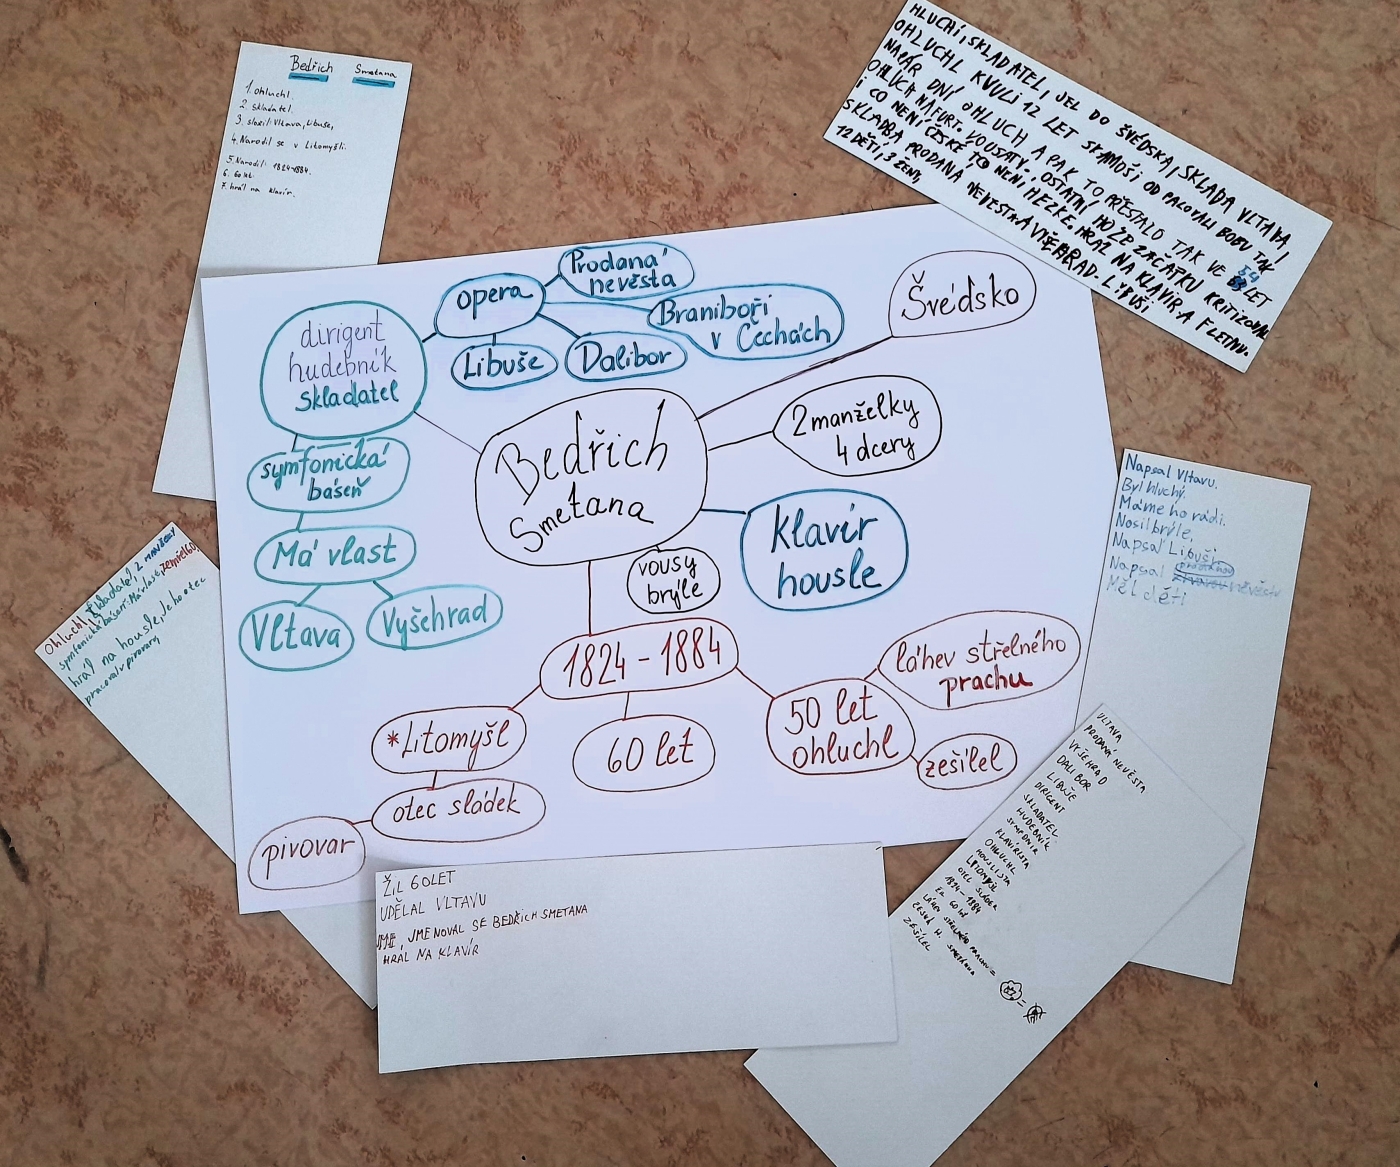 Bedřich Smetana
1. Ohluchl.
2. Skladatel.
3. složil: Vltava, Libuše,
4. Narodil se v Litomyšli.
5. Narodil: 1824-1884.
6. 60 let
7. hrál na klavír.
HLUCHÍ, SKLADATEL, JEL DO ŠVÉDSKA, SKLADA VLTAVA,
OHLUCHL KVULI 12 LET SKAMOŠI OD PALOVALI BOBU TAK
NAPÁR DNÍ OHLUCH A PAK TO PŘESTALO TAK VE 54 LET
OHLUCH NAFURT. VOUSATY. OSTATNÍ HO ZE ZAČÁTKU KRITIZOVAL
I CO NENÍ ČESKÉ TO NENÍ HEZKE. HRÁL NA KLAVÍR A FLETNU.
SKLADBA PRODANA NEVESTA A VIŠEHRAD. LIBUŠI
12 DĚTI, 3 ŽENY,
opera
Prodaná
nevěsta
Braniboři
v Čechách
Libuše
Dalibor
Švédsko
dirigent
hudebník
skladatel
Bedřich
Smetana
2 manželky
4 dcery
symfonická
báseň
klavír
housle
Má vlast
vousy
brýle
Vltava
Vyšehrad
1824-1884
láhev střelného
prachu
50 let
ohluchl
zešílel
*Litomyšl
60 let
otec sládek
pivovar
Ohluchl, skladatel, 2 manželky
symfonická báseň: Má vlast, zemřel 60,
hrál na housle, Jeho otec
pracoval v pivovary
Napsal Vltavu.
Byl hluchý.
Máme ho rádi.
Nosil brýle.
Napsal Libuši
Napsal prodanou nevěstu
Měl děti
ŽIL 60 LET
UDĚLAL VLTAVU
JMENOVAL SE BEDŘICH SMETANA
HRÁL NA KLAVÍR
VLTAVA
PRODANÁ NEVĚSTA
VYŠEHRAD
DALIBOR
LIBUŠE
DIRIGENT
SKLADATEL
HUDEBNÍK
KLAVÍRISTA
OHLUCHL
HOUSLISTA
LITOMYŠL
OTEC SLÁDEK
1824-1884
60 let
LÁHEV STŘELNÉHO PRACHU =
ZEŠÍLEL